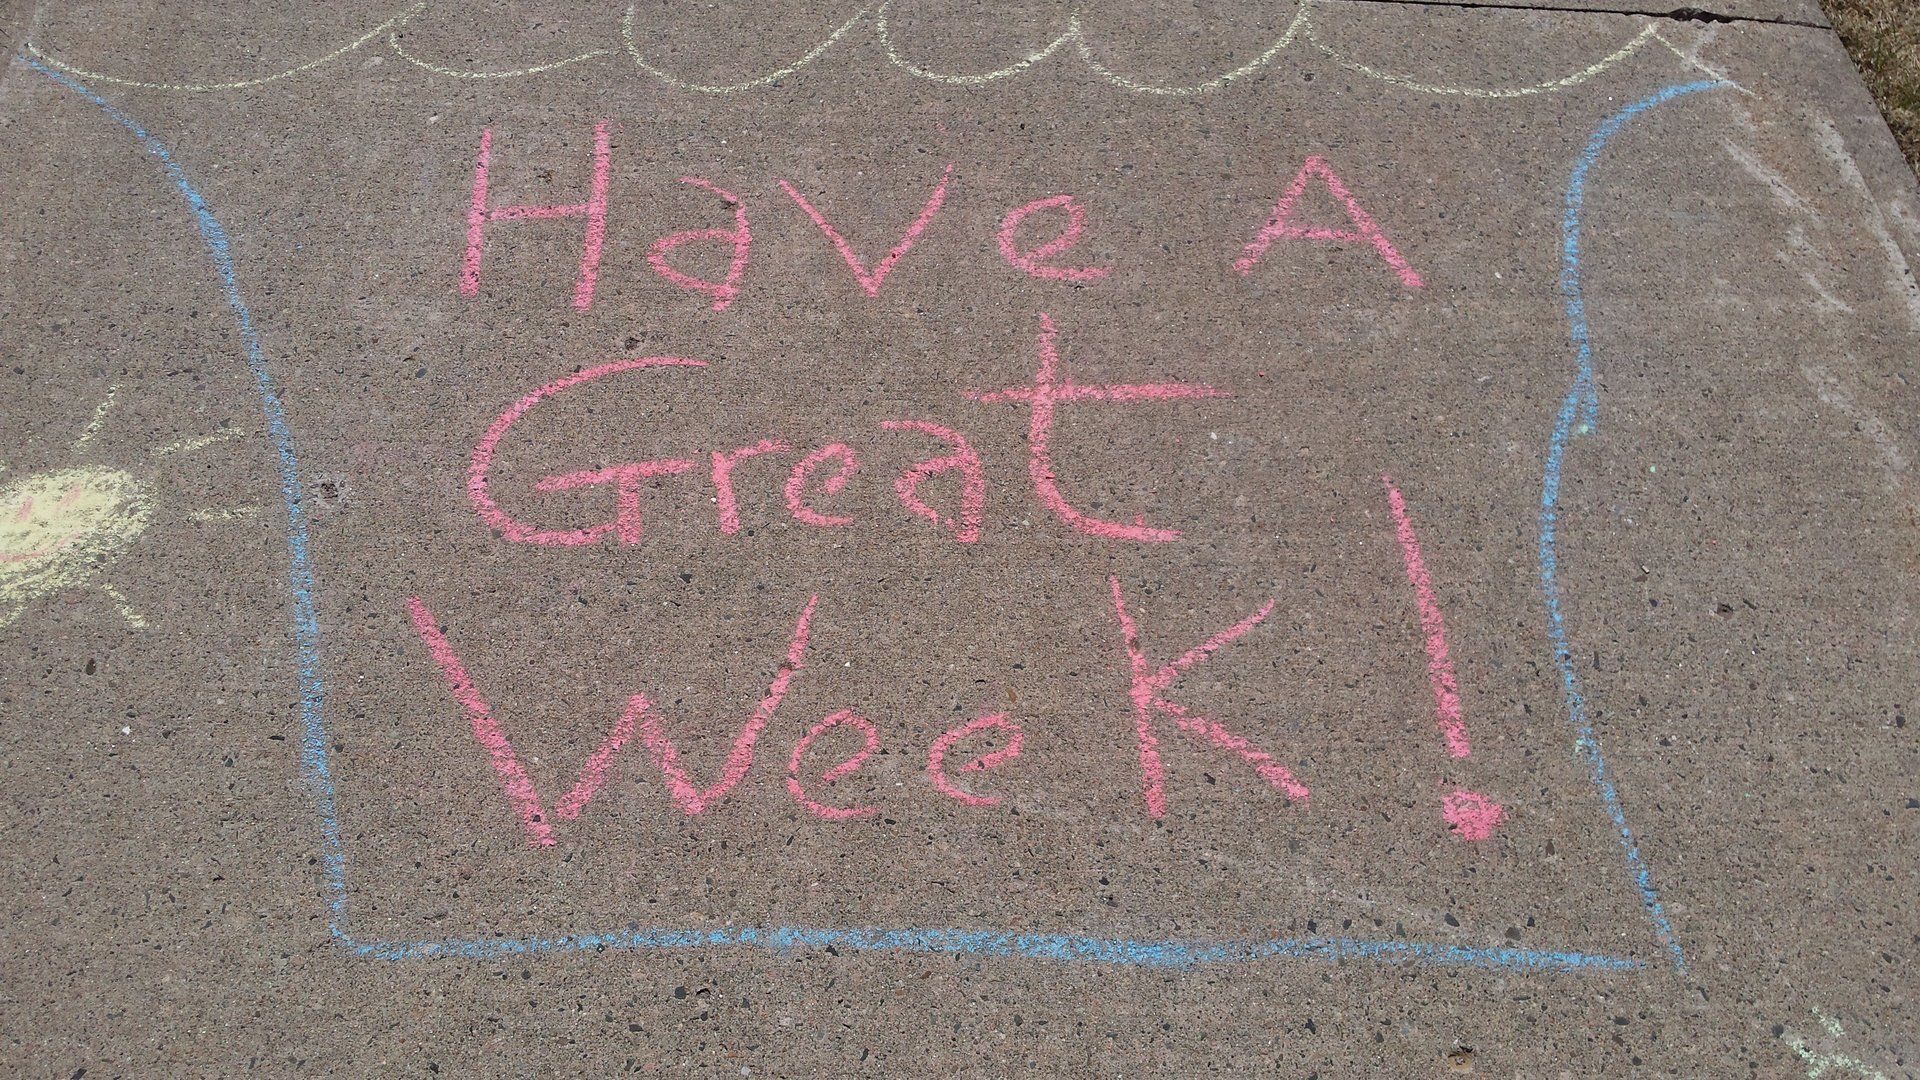 Have A
Great
Week!